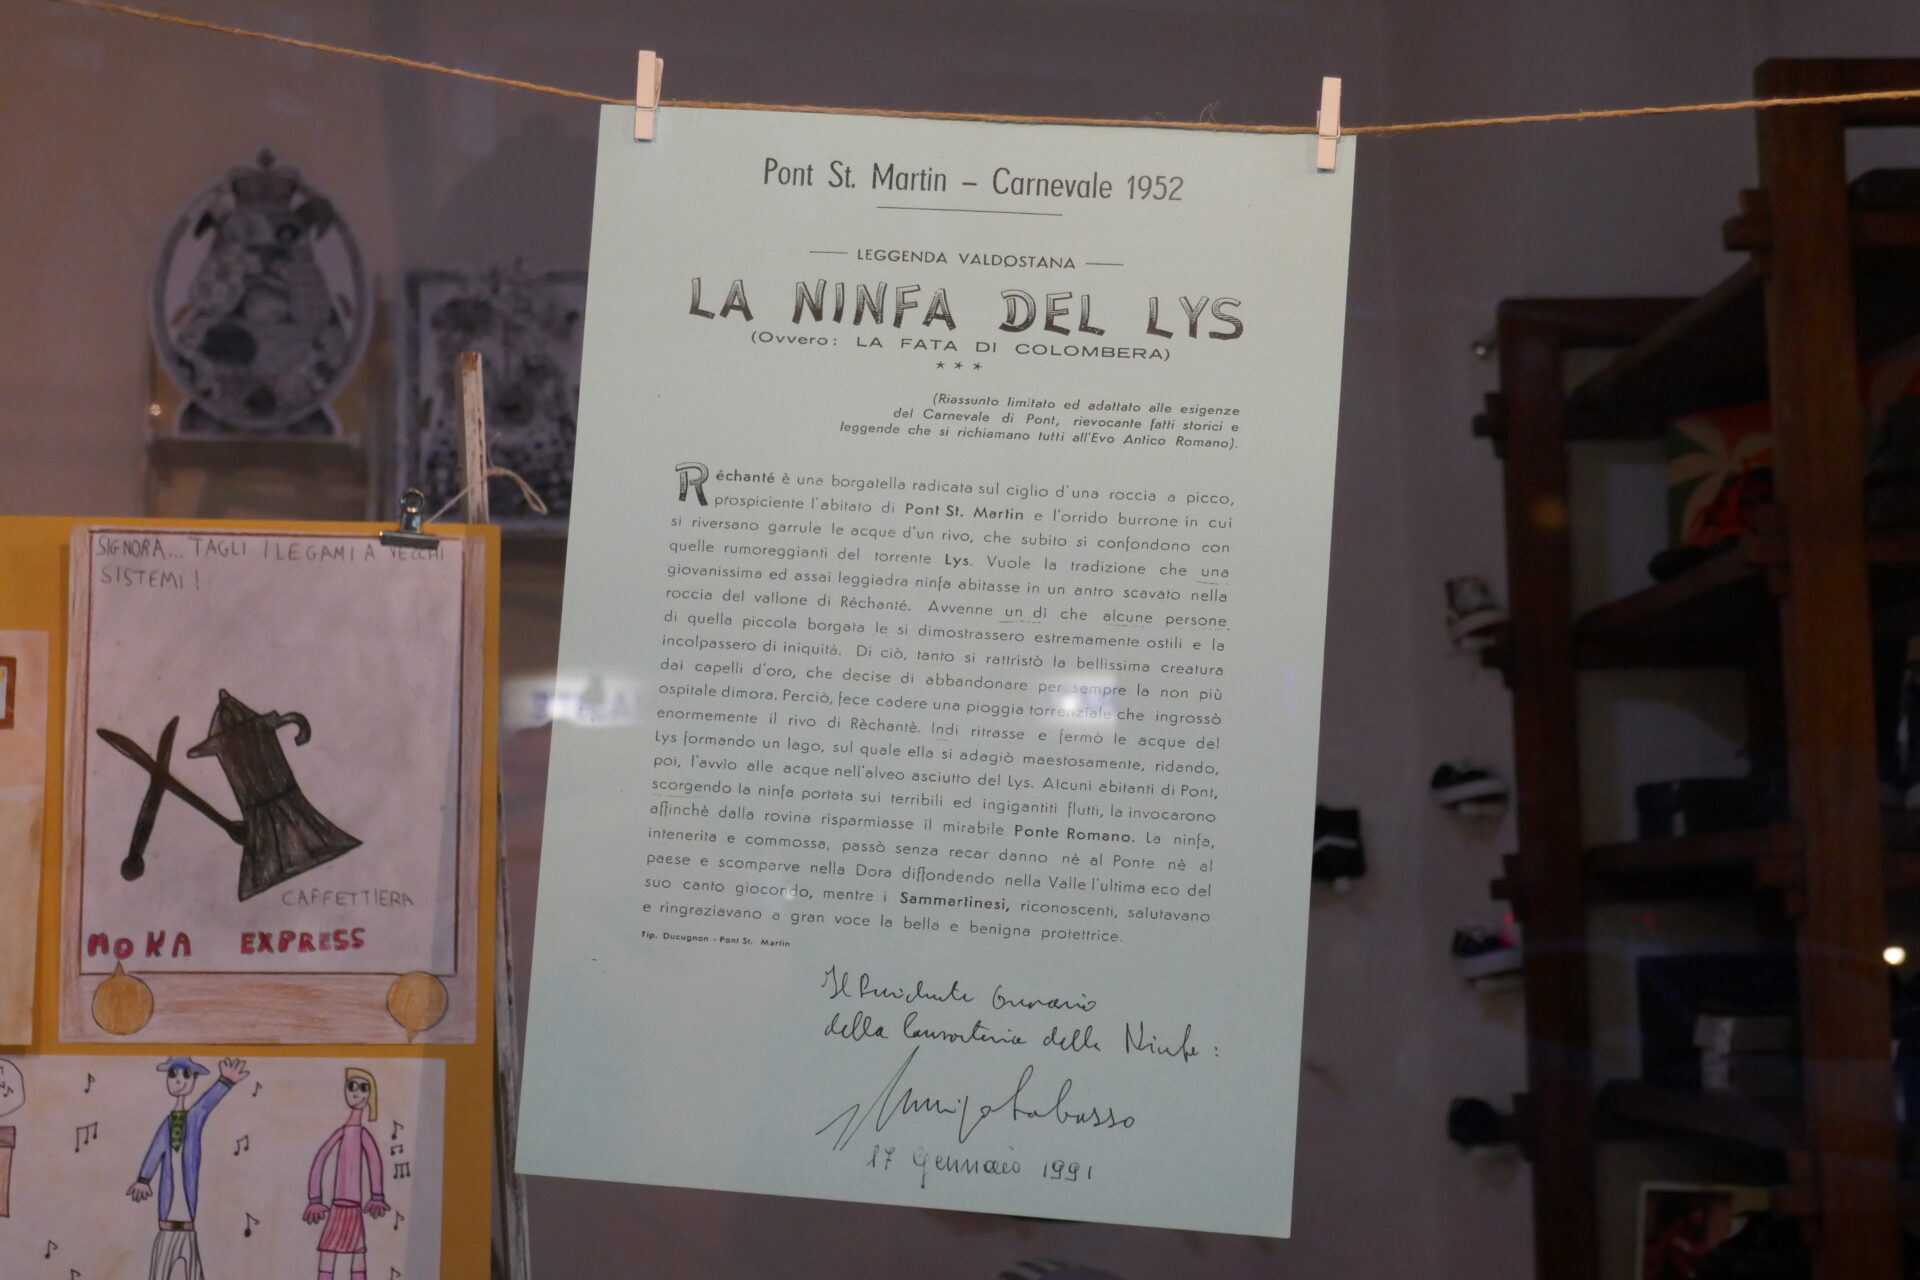 Pont St. Martin – Carnevale 1952
LEGGENDA VALDOSTANA
LA NINFA DEL LYS
(Ovvero: LA FATA DI COLOMBERA)
* * *
(Riassunto limitato ed adattato alle esigenze
del Carnevale di Pont, rievocante fatti storici e
leggende che si richiamano tutti all'Evo Antico Romano).
Réchanté è una borgatella radicata sul ciglio d'una roccia a picco,
prospiciente l'abitato di Pont St. Martin e l'orrido burrone in cui
si riversano garrule le acque d'un rivo, che subito si confondono con
quelle rumoreggianti del torrente Lys. Vuole la tradizione che una
giovanissima ed assai leggiadra ninfa abitasse in un antro scavato nella
roccia del vallone di Réchanté. Avvenne un dì che alcune persone
di quella piccola borgata le si dimostrassero estremamente ostili e la
incolpassero di iniquità. Di ciò, tanto si rattristò la bellissima creatura
dai capelli d'oro, che decise di abbandonare per sempre la non più
ospitale dimora. Perciò, fece cadere una pioggia torrenziale che ingrossò
enormemente il rivo di Rèchantè. Indi ritrasse e fermò le acque del
Lys formando un lago, sul quale ella si adagiò maestosamente, ridando,
poi, l'avvio alle acque nell'alveo asciutto del Lys. Alcuni abitanti di Pont,
scorgendo la ninfa portata sui terribili ed ingigantiti flutti, la invocarono
affinchè dalla rovina risparmiasse il mirabile Ponte Romano. La ninfa,
intenerita e commossa, passò senza recar danno nè al Ponte nè al
paese e scomparve nella Dora diffondendo nella Valle l'ultima eco del
suo canto giocondo, mentre i Sammartinesi, riconoscenti, salutavano
e ringraziavano a gran voce la bella e benigna protettrice.
Tip. Ducugnon - Pont St. Martin
Il Presidente Onorario
della Consorteria delle Ninfe :
17 Gennaio 1991
SIGNORA... TAGLI I LEGAMI A VECCHI
SISTEMI !
CAFFETTIERA
MOKA EXPRESS